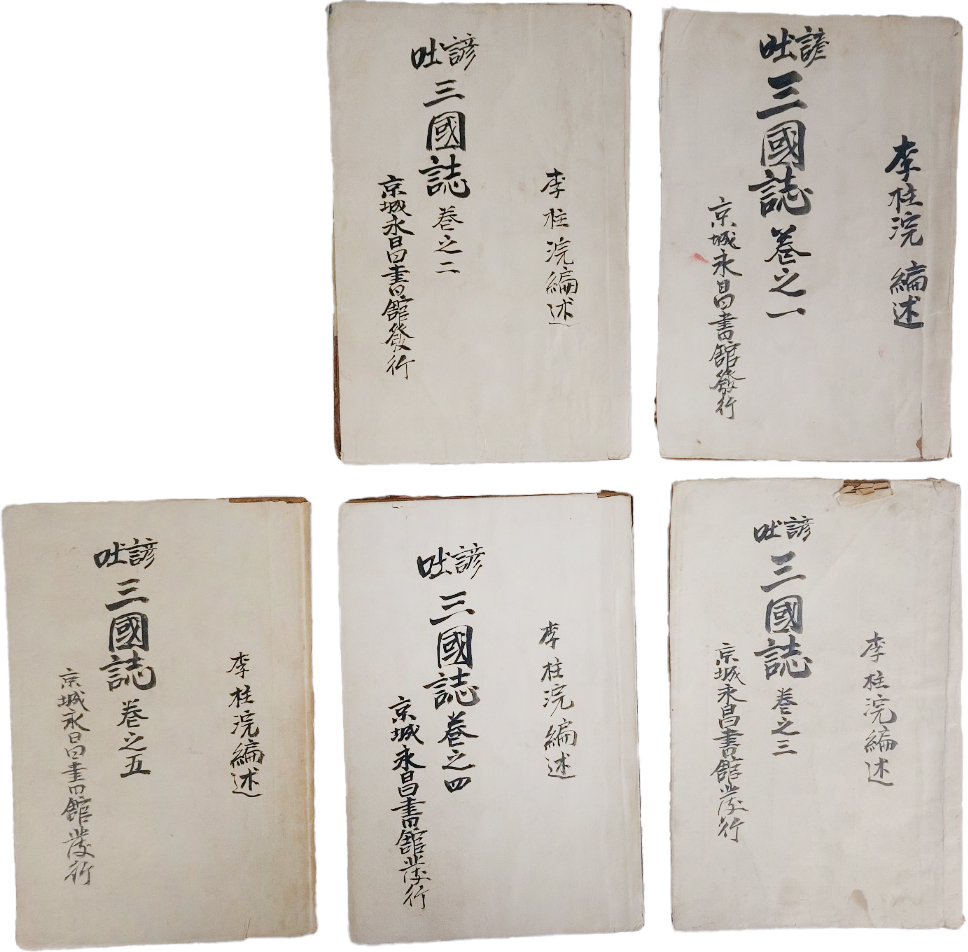 李柱浣 編述
諺吐
三國誌 卷之一
京城永昌書館發行
李柱浣編述
諺吐
三國誌 卷之二
京城永昌書館發行
李柱浣編述
諺吐
三國誌 卷之三
京城永昌書館發行
李柱浣編述
諺吐
三國誌卷之四
京城永昌書館發行
李柱浣編述
諺吐
三國誌 卷之五
京城永昌書館發行